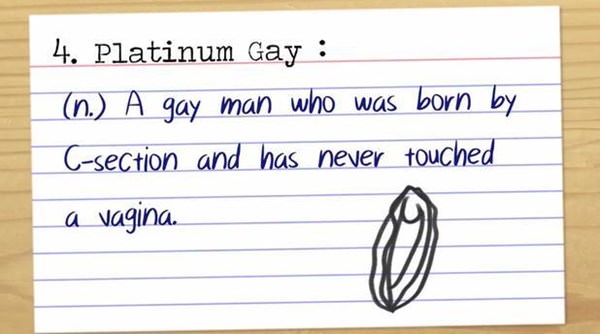 4. Platinum Gay :
(n.) A gay man who was born by
C-section and has never touched
a vagina.